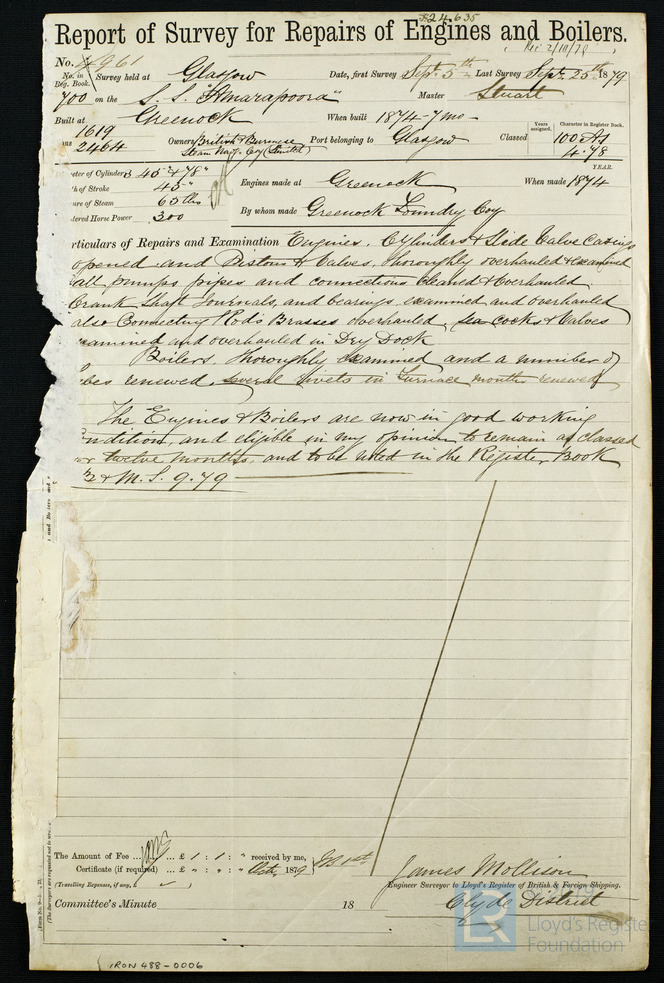 824.635
Report of Survey for Repairs of Engines and Boilers.
(Rec 2/10/79)
No. 4961
No. in Reg. Book. Survey held at Glasgow Date, first Survey Sept. 5th Last Survey Sept. 25th 1879
700 on the S.S. "Amarapoora" Master Stuart
Built at Greenock When built 1874-7mo-
1619
ns 2464 Owners British & Burmese Steam Nav. Coy (Limited) Port belonging to Glasgow Classed Years assigned. Character in Register Book. 100 A1 4.78
YEAR.
eter of Cylinders 45" & 78"
h of Stroke 45" Engines made at Greenock When made 1874
ure of Steam 65 lbs
dered Horse Power 300 By whom made Greenock Foundry Coy
rticulars of Repairs and Examination Engines. Cylinders & Slide Valve Casings
opened and Pistons & Valves, thoroughly overhauled & examined
all pumps pipes and connections cleaned & overhauled.
Crank Shaft Journals, and bearings, examined and overhauled
also Connecting Rods Brasses overhauled, sea cocks & Valves
examined and overhauled in Dry Dock
Boilers. Thoroughly examined and a number of
bes renewed, several rivets in furnace mouths renewed
The Engines & Boilers are now in good working
ondition, and eligible in my opinion to remain as classed
or twelve months, and to be noted in the Register Book
& M.S. 9.79
The Amount of Fee ... £ 1 : 1 : " received by me,
Certificate (if required) ... £ " : " : " Oct. 1879
(Travelling Expenses, if any, £ )
James Mollison
Engineer Surveyor to Lloyd's Register of British & Foreign Shipping.
Committee's Minute 18 Clyde District
LR
Lloyd's Register
Foundation
IRON 488-0006